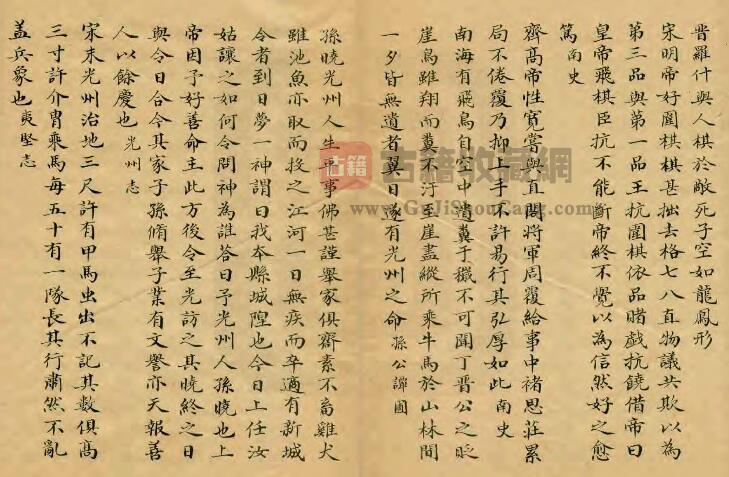 晋羅什與人棋於敵死子空如龍鳳形
宋明帝好圍棋棋甚拙去格七八直物議共欺以為
第三品與第一品王抗圍棋依品賭戲抗饒借帝曰
皇帝飛棋臣抗不能斷帝終不覺以為信然好之愈
篤南史
齊高帝性寛嘗與直閣將軍周覆給事中褚思莊累
局不倦覆乃抑上手不許易行其弘厚如此南史
南海有飛鳥自空中遺糞于穢不可聞丁晋公之貶
崖鳥雖翔而糞不汙至崖盡縱所乗牛馬於山林間
一夕皆無遺者翼日遂有光州之命孫公談圃
孫曉光州人生平事佛甚謹舉家俱齋素不畜雞犬
雖池魚亦取而投之江河一日無疾而卒適有新城
令者到日夢一神謂曰我夲縣城隍也今日上任汝
姑讓之如何令問神為誰答曰予光州人孫曉也上
帝因予好善命主此方後令至光訪之其曉終之日
與今日合令其家子孫脩舉子業有文譽亦天報善
人以餘慶也光州志
宋末光州治地三尺許有甲馬虫出不記其數俱高
三寸許介胄乗馬每五十有一隊長其行肅然不亂
盖兵象也夷堅志
古籍
古籍收藏網
www.GuJiShouCang.com